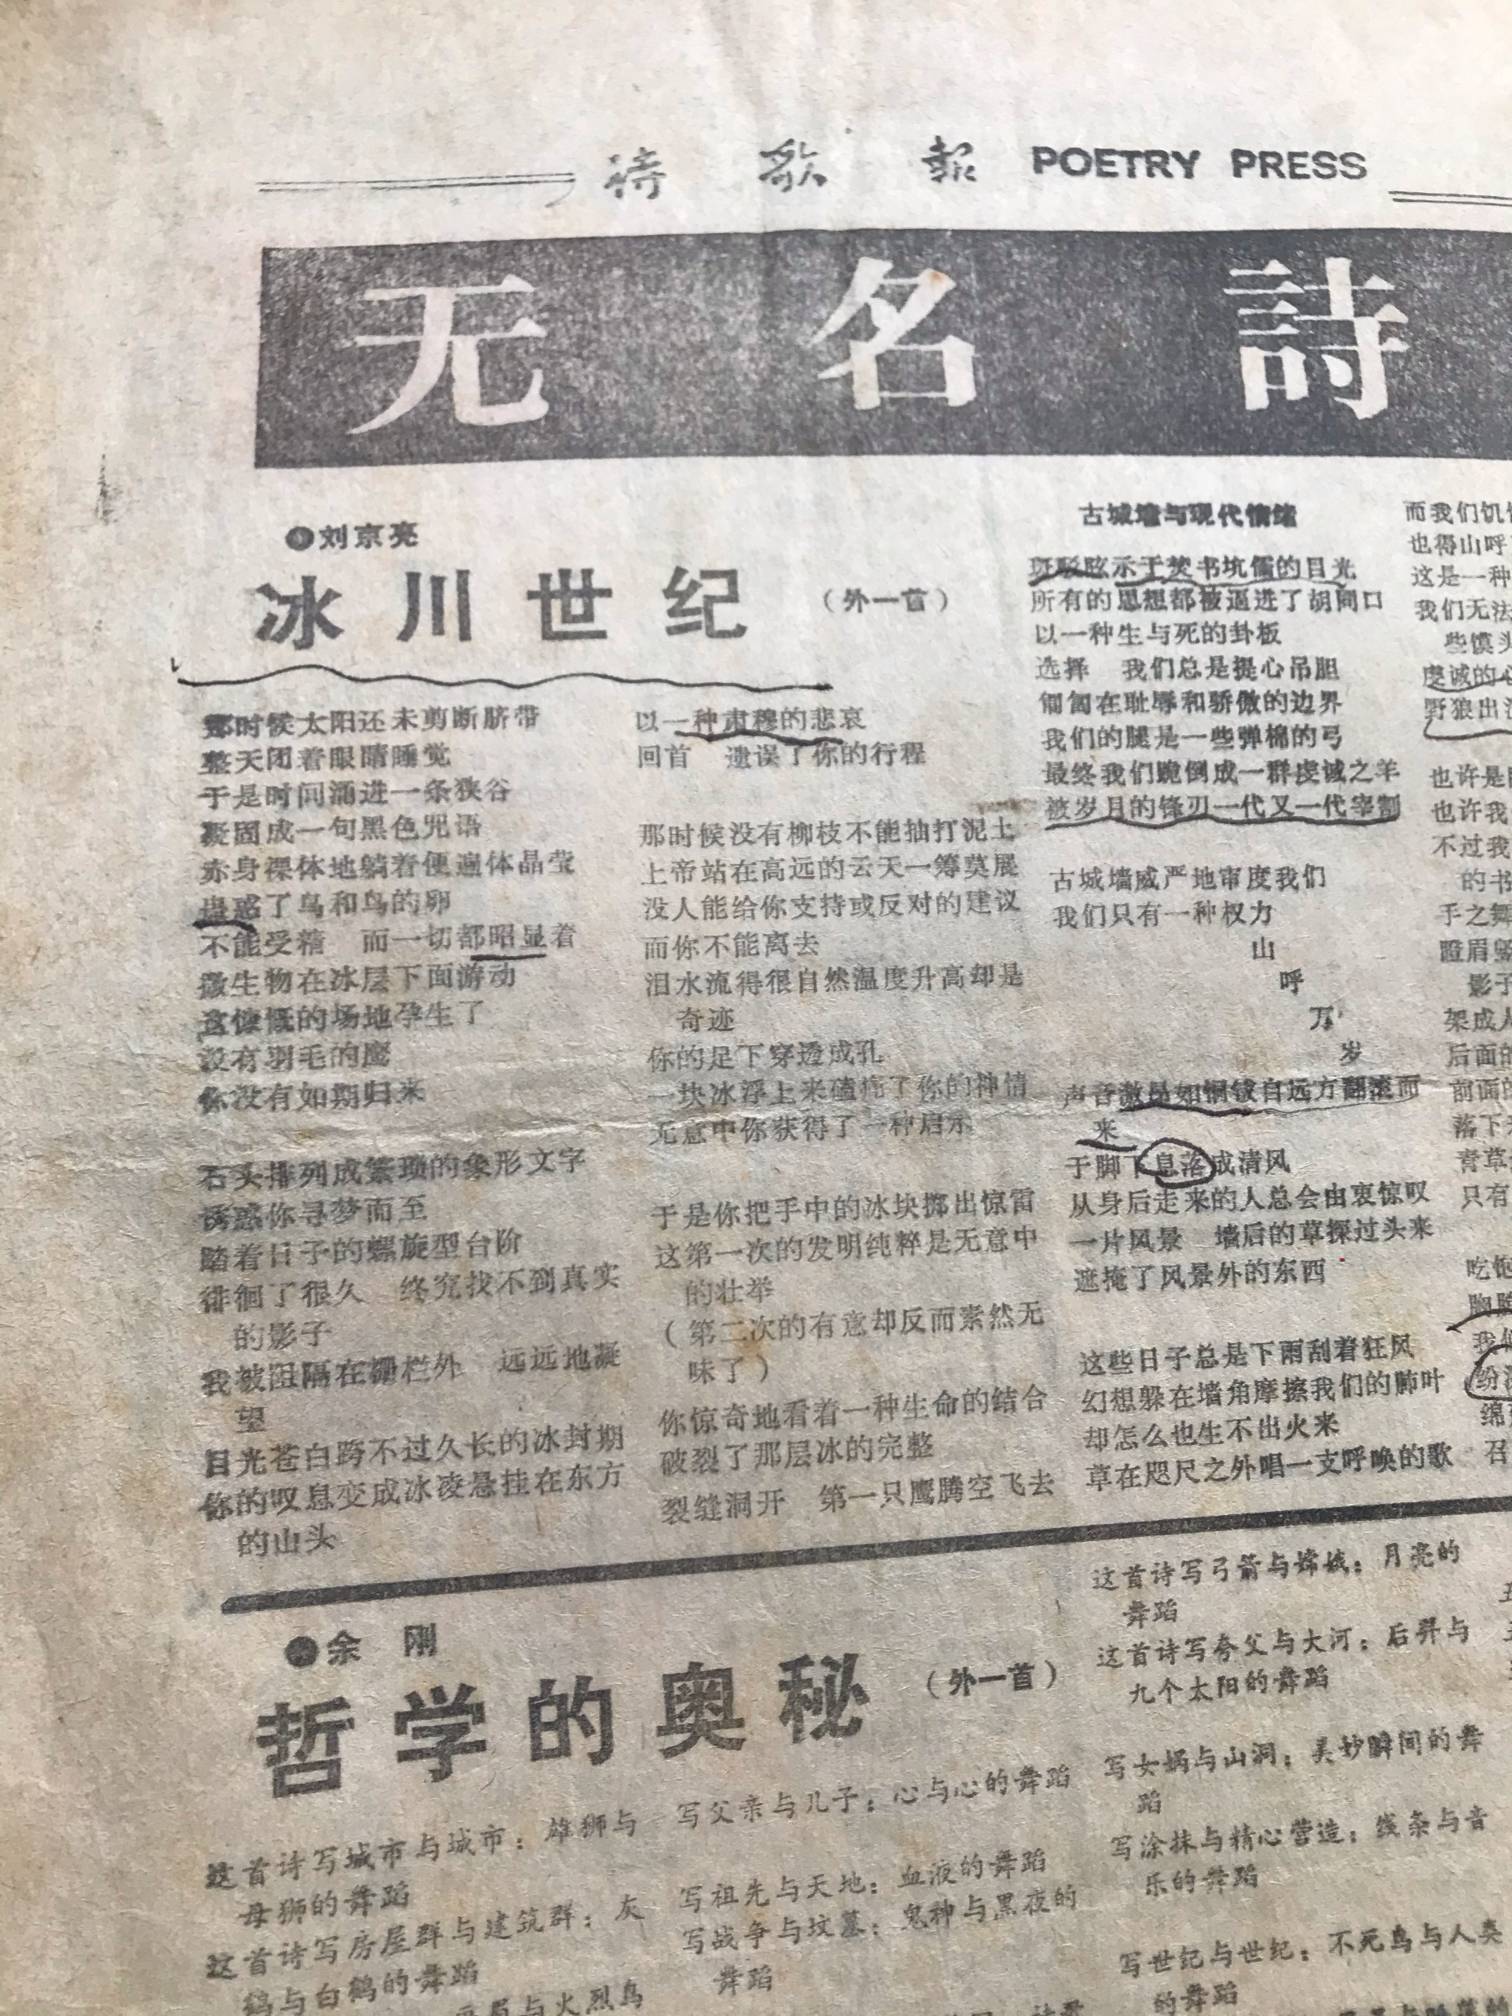 诗歌報 POETRY PRESS
无名詩
●刘京亮
冰川世纪 （外一首）
那时候太阳还未剪断脐带
整天闭着眼睛睡觉
于是时间涌进一条狭谷
凝固成一句黑色咒语
赤身裸体地躺着便遍体晶莹
蛊惑了鸟和鸟的卵
不能受精　而一切都昭显着
微生物在冰层下面游动
这慷慨的场地孕生了
没有羽毛的鹰
你没有如期归来
石头排列成繁琐的象形文字
诱惑你寻梦而至
踏着日子的螺旋型台阶
徘徊了很久　终究找不到真实
的影子
我被阻隔在栅栏外　远远地凝
望
目光苍白跨不过久长的冰封期
你的叹息变成冰凌悬挂在东方
的山头
以一种肃穆的悲哀
回首　遗误了你的行程
那时候没有柳枝不能抽打泥土
上帝站在高远的云天一筹莫展
没人能给你支持或反对的建议
而你不能离去
泪水流得很自然温度升高却是
奇迹
你的足下穿透成孔
一块冰浮上来磕疼了你的神情
无意中你获得了一种启示
于是你把手中的冰块掷出惊雷
这第一次的发明纯粹是无意中
的壮举
（第二次的有意却反而索然无
味了）
你惊奇地看着一种生命的结合
破裂了那层冰的完整
裂缝洞开　第一只鹰腾空飞去
古城墙与现代情绪
斑驳眩示于焚书坑儒的目光
所有的思想都被逼进了胡同口
以一种生与死的卦板
选择　我们总是提心吊胆
匍匐在耻辱和骄傲的边界
我们的腿是一些弹棉的弓
最终我们跪倒成一群虔诚之羊
被岁月的锋刃一代又一代宰割
古城墙威严地审度我们
我们只有一种权力
山
呼
万
岁
声音激昂如铜钹自远方翻滚而
来
于脚下息落成清风
从身后走来的人总会由衷惊叹
一片风景　墙后的草探过头来
遮掩了风景外的东西
这些日子总是下雨刮着狂风
幻想躲在墙角摩擦我们的肺叶
却怎么也生不出火来
草在咫尺之外唱一支呼唤的歌
而我们饥
也得山呼
这是一种
我们无法
些馍头
虔诚的
野狼出
也许是
也许我
不过我
的书
手之舞
瞪眉竖
影子
架成人
后面的
前面的
落下
青草
只有
吃饱
胸膛
我们
纷
绵
召
●余刚
哲学的奥秘 （外一首）
这首诗写城市与城市：雄狮与
母狮的舞蹈
这首诗写房屋群与建筑群：灰
鹤与白鹤的舞蹈
与火烈鸟
写父亲与儿子：心与心的舞蹈
写祖先与天地：血液的舞蹈
写战争与坟墓：鬼神与黑夜的
舞蹈
这首诗写弓箭与嫦娥：月亮的
舞蹈
这首诗写夸父与大河：后羿与
九个太阳的舞蹈
写女娲与山洞：美妙瞬间的舞
蹈
写涂抹与精心营造：线条与音
乐的舞蹈
写世纪与世纪：不死鸟与人类
的舞蹈